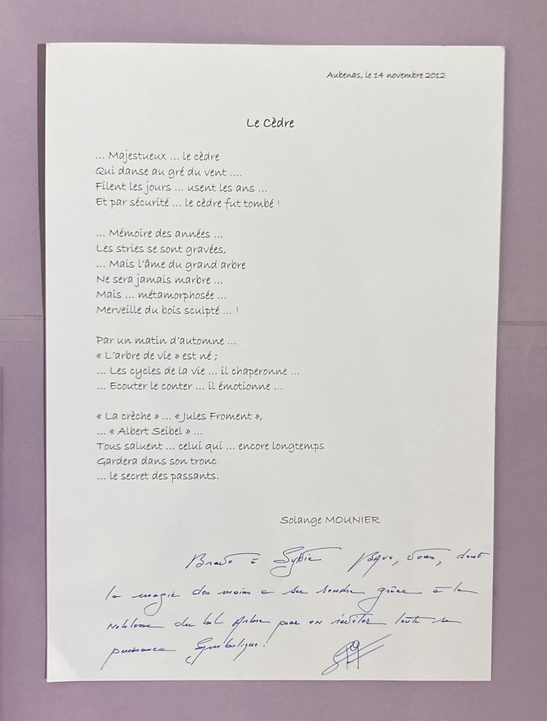 Aubenas, le 14 novembre 2012
Le Cèdre
... Majestueux ... le cèdre
Qui danse au gré du vent ....
Filent les jours ... usent les ans ...
Et par sécurité ... le cèdre fut tombé !
... Mémoire des années ...
Les stries se sont gravées,
... Mais l'âme du grand arbre
Ne sera jamais marbre ...
Mais ... métamorphosée ...
Merveille du bois sculpté ... !
Par un matin d'automne ...
« L'arbre de vie » est né ;
... Les cycles de la vie ... il chaperonne ...
... Ecouter le conter ... il émotionne ...
« La crèche » ... « Jules Froment »,
... « Albert Seibel » ...
Tous saluent ... celui qui ... encore longtemps
Gardera dans son tronc
... le secret des passants.
Solange MOUNIER
Bravo à dont
la magie des mains a su rendre grâce à la
noblesse du bel Arbre pour en révéler toute sa
puissance symbolique !